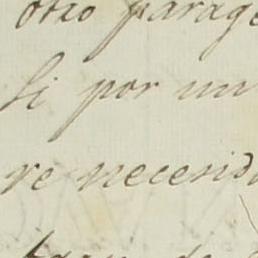 otro parage
si por un
re necesid